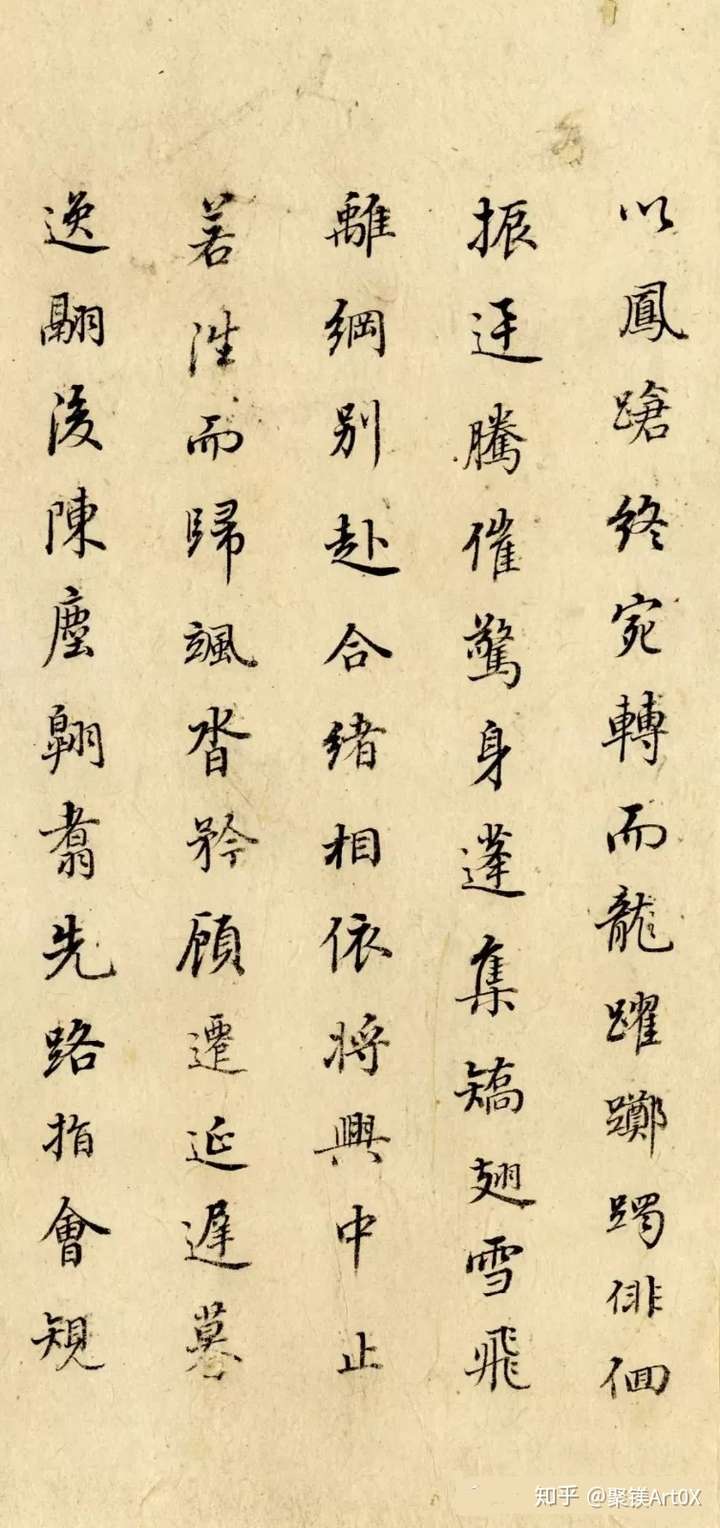 以鳳蹌終宛轉而龍躍躑躅俳佪
振迅騰催驚身蓬集矯翅雪飛
離綱别赴合緒相依將興中止
若往而歸颯沓矜顧遷延遲暮
逸翮後陳塵翱翥先路指會規
知乎 @聚镁Art0X